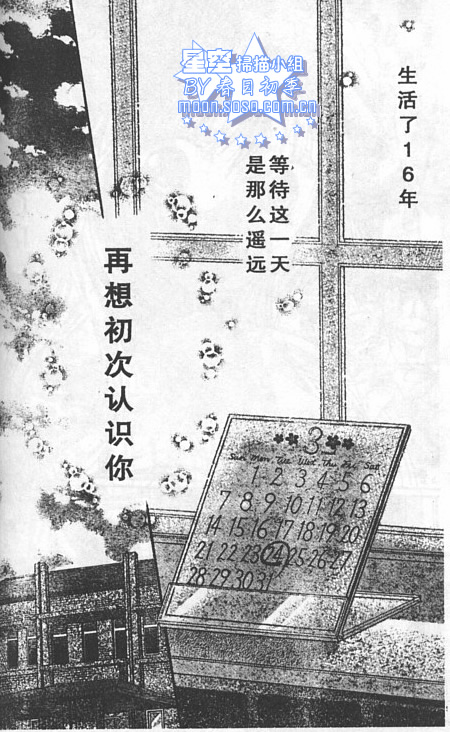 生活了16年
等待这一天
是那么遥远
再想初次认识你
星空扫描小组
BY春日初季
moon.soso.com.cn
3
Sun Mon Tue Wed Thu Fri Sat
1 2 3 4 5 6
7 8 9 10 11 12 13
14 15 16 17 18 19 20
21 22 23 24 25 26 27
28 29 30 31